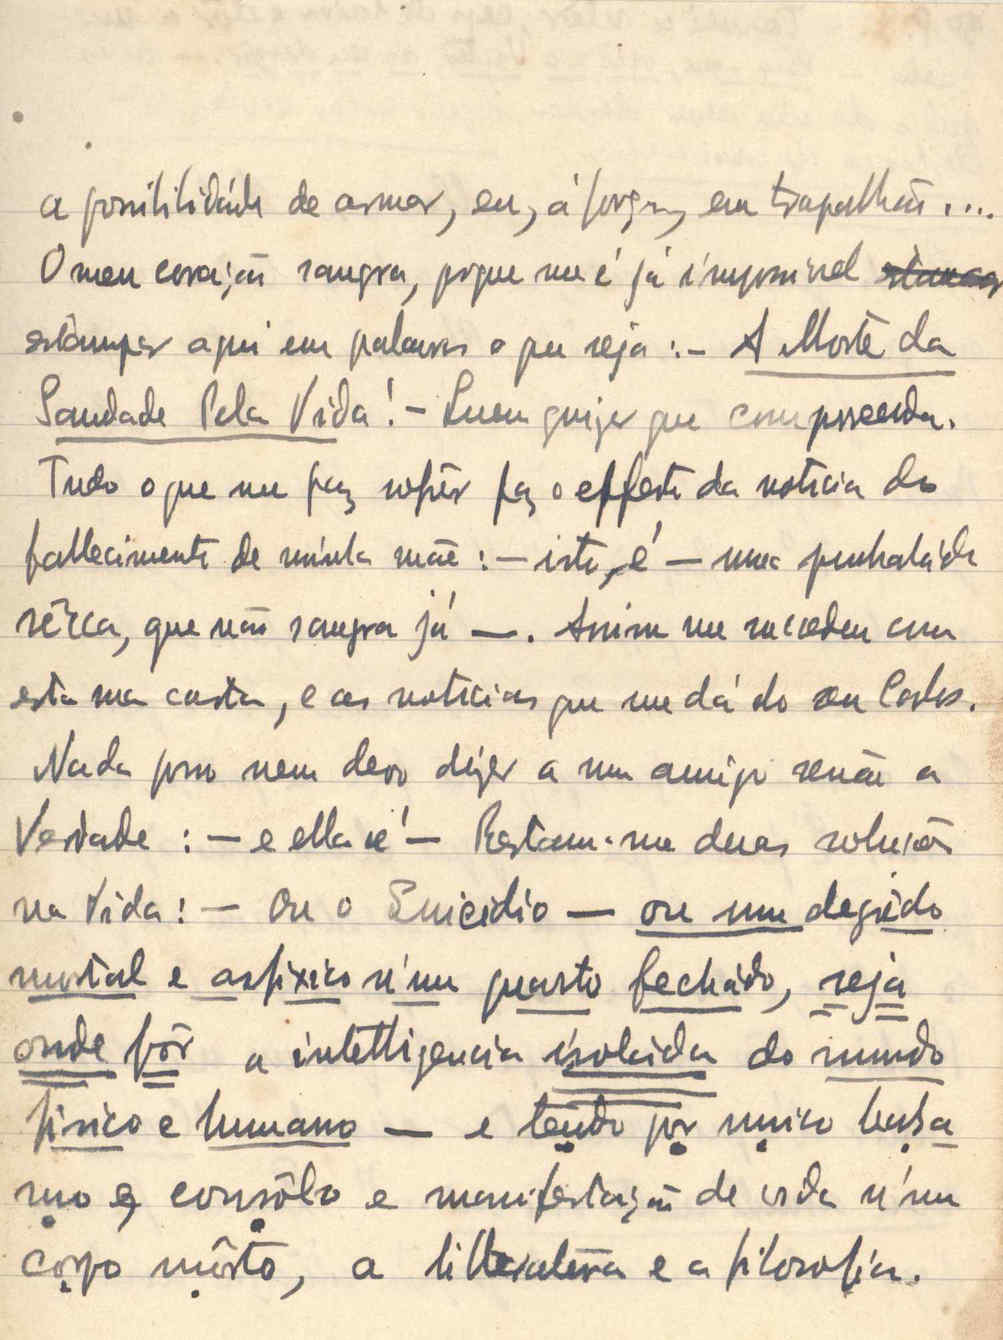 a possibilidáde de asmar, eu, á força, eu trapalhão....
O meu coração sangra, porque me é já impossivel
estampar aqui em palavras o que seja :– A Morte da
Saudade Pela Vida! – Quem quizer que comprehenda.
Tudo o que me faz sofrêr faz o effeito da noticia do
fallecimento de minha mãe : – isto, é – uma punhaláda
sêcca, que não sangra já –. Assim me succedeu com
esta sua carta, e as noticias que me dá do seu Carlos.
Nada posso nem devo dizer a um amigo senão a
Verdade : – e ella é! – Restam-me duas soluções
na Vida! – Ou o Suicidio – ou um degrêdo
mortal e asfixico n'um quarto fechádo, seja
onde fôr a intelligencia isoláda do mundo
fisico e humano – e tendo por unico balsa
mo e consôlo e manifestação de vida n'um
corpo môrto, a litteratura e a filosofia.